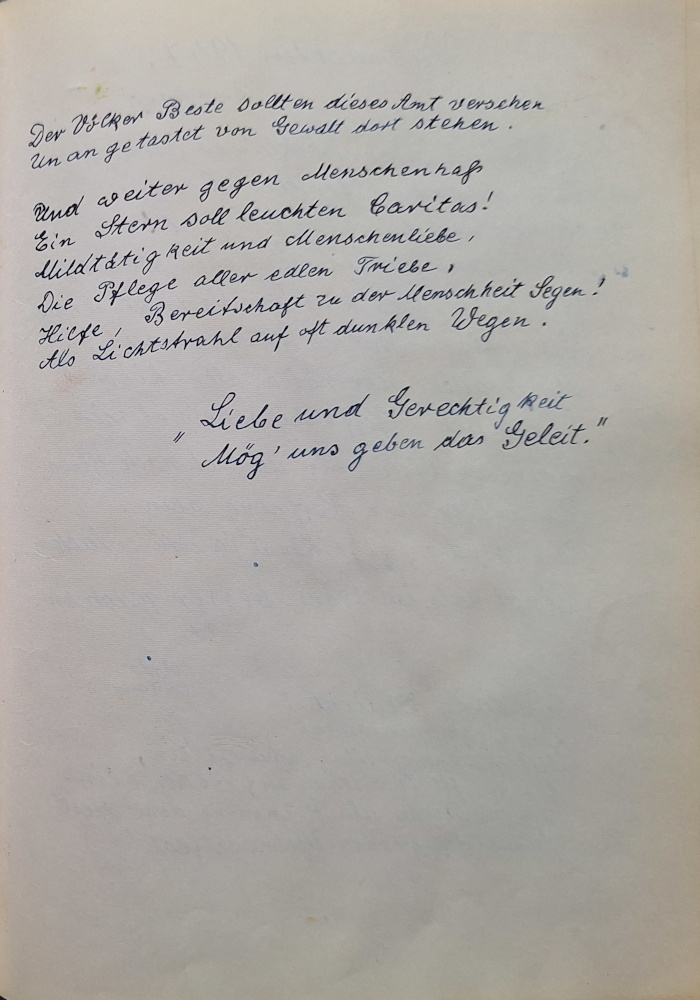 Der Völker Beste sollten dieses Amt versehen
Unangetastet von Gewalt dort stehen.
Und weiter gegen Menschenhaß
Ein Stern soll leuchten Caritas!
Mildtätigkeit und Menschenliebe,
Die Pflege aller edlen Triebe,
Hilfe, Bereitschaft zu der Menschheit Segen!
Als Lichtstrahl auf oft dunklen Wegen.
„Liebe und Gerechtigkeit
Mög' uns geben das Geleit."